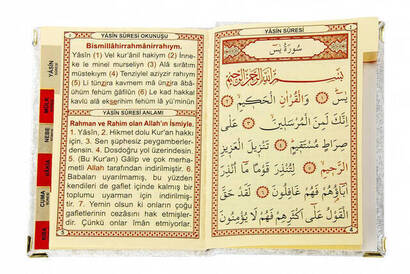 YÂSÎN SÛRESİ OKUNUŞU
Bismillâhirrahmânirrahıym.
Yâsîn (1) Vel kur'ânil hakiym (2) İnne-
ke le minel murseliyn (3) Alâ sırâtım
müstekıym (4) Tenziylel aziyzir rahıym
(5) Li tünzira kavmem mâ ünzira âbâ-
ühüm fehüm ğâfilûn (6) Le kad hakkal
kavlü alâ ekserihim fehüm lâ yü'minûn
YÂSÎN SÛRESİ ANLAMI
Rahman ve Rahim olan Allah'ın İsmiyle.
1. Yâsîn, 2. Hikmet dolu Kur'an hakkı
için, 3. Sen şüphesiz peygamberler-
densin. 4. Dosdoğru yol üzerindesin.
5. (Bu Kur'an) Gâlip ve çok merha-
metli Allah tarafından indirilmiştir. 6.
Babaları uyarılmamış, bu yüzden
kendileri de gaflet içinde kalmış bir
toplumu uyarman için indirilmiş-
tir. 7. Yemin olsun ki onların çoğu
gafletlerinin cezasını hak etmişler-
dir. Çünkü onlar îman etmiyorlar.
YÂSÎN
MÜLK
NEBE
VÂKIA
CUMA
YÂSÎN SÛRESİ
سُورَةُ يٰسٓ
بِسْمِ اللّٰهِ الرَّحْمٰنِ الرَّحِيمِ
يٰسٓ ﴿١﴾ وَالْقُرْاٰنِ الْحَكِيمِ ﴿٢﴾
اِنَّكَ لَمِنَ الْمُرْسَلِينَ ﴿٣﴾ عَلٰى
صِرَاطٍ مُسْتَقِيمٍ ﴿٤﴾ تَنْزِيلَ الْعَزِيزِ
الرَّحِيمِ ﴿٥﴾ لِتُنْذِرَ قَوْمًا مَٓا اُنْذِرَ
اٰبَٓاؤُ۬هُمْ فَهُمْ غَافِلُونَ ﴿٦﴾ لَقَدْ حَقَّ
الْقَوْلُ عَلٰٓى اَكْثَرِهِمْ فَهُمْ لَا يُؤْمِنُونَ